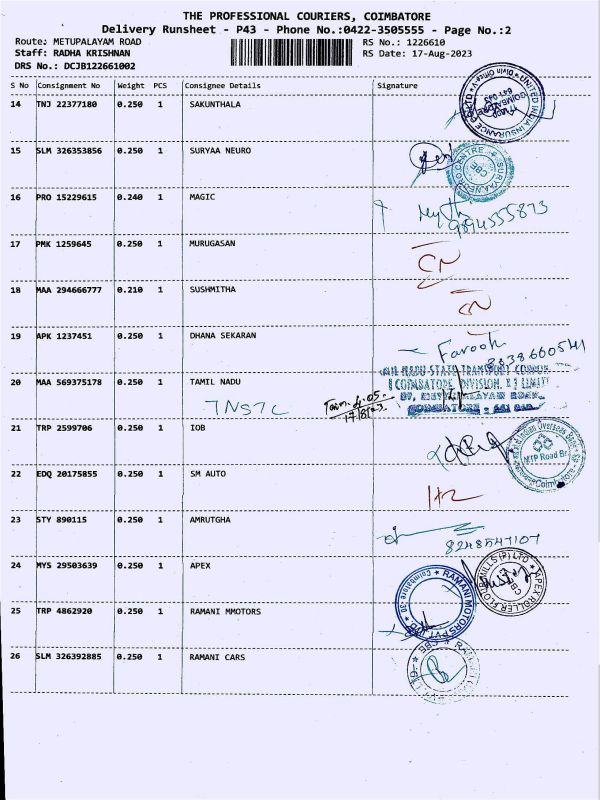 THE PROFESSIONAL COURIERS, COIMBATORE
Delivery Runsheet - P43 - Phone No.:0422-3505555 - Page No.:2
Route: METUPALAYAM ROAD RS No.: 1226610
Staff: RADHA KRISHNAN RS Date: 17-Aug-2023
DRS No.: DCJB122661002
S No Consignment No Weight PCS Consignee Details Signature
14 TNJ 22377180 0.250 1 SAKUNTHALA
UNITED INDIA INSURANCE
COIMBATORE
15 SLM 326353856 0.250 1 SURYAA NEURO
SURYAA NEURO CENTRE
CBE
16 PRO 15229615 0.240 1 MAGIC
9894555873
17 PMK 1259645 0.250 1 MURUGASAN
CN
18 MAA 294666777 0.210 1 SUSHMITHA
CN
19 APK 1237451 0.250 1 DHANA SEKARAN
Farook
8638660541
20 MAA 569375178 0.250 1 TAMIL NADU
TNSTC
TAMIL NADU STATE TRANSPORT
COIMBATORE DIVISION
21 TRP 2599706 0.250 1 IOB
Indian Overseas Bank
MTP Road Br.
Coimbatore
22 EDQ 20175855 0.250 1 SM AUTO
23 STY 890115 0.250 1 AMRUTGHA
8248547107
24 MYS 29503639 0.250 1 APEX
APEX ROLLER FLOUR MILLS (P) LTD
CBE
25 TRP 4862920 0.250 1 RAMANI MMOTORS
RAMANI MOTORS PVT LTD
Coimbatore-30
26 SLM 326392885 0.250 1 RAMANI CARS
RAMANI
CBE